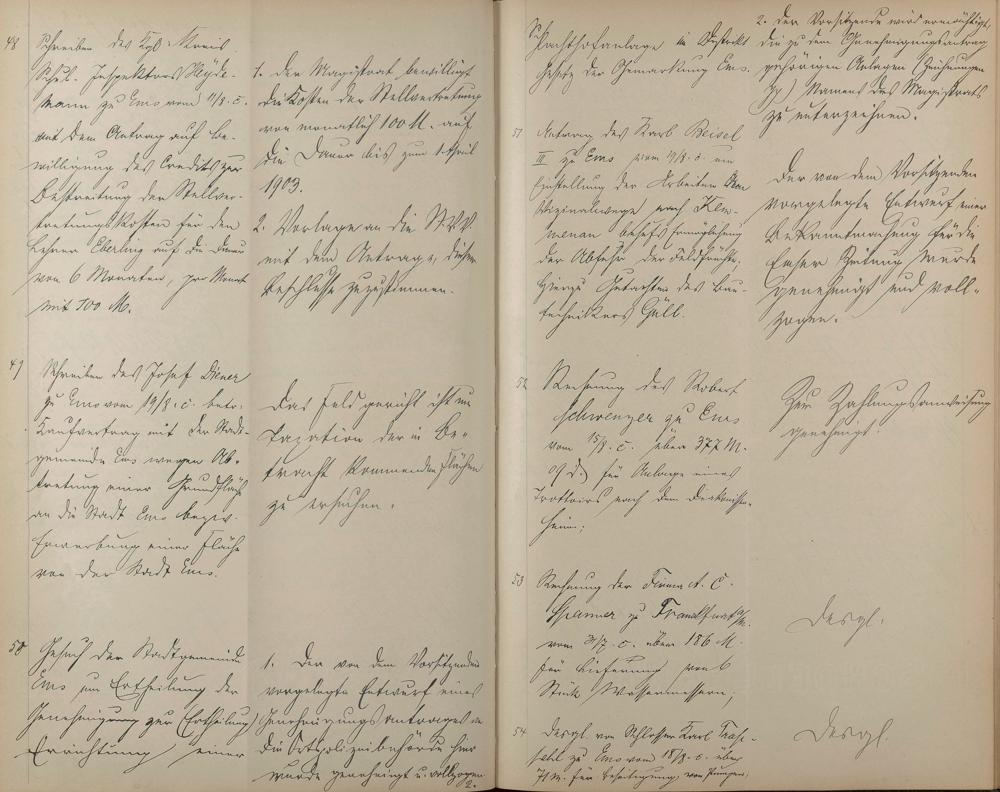 48 Schreiben des Kgl. Kreis-
Schul-Inspektors Heyde-
mann zu Ems vom 11/8. c.
mit dem Antrag auf Be-
willigung des Credits zur
Bestreitung der Stellver-
tretungskosten für den
Lehrer Eberling auf die Dauer
von 6 Monaten, pro Monat
mit 100 M.
1. Der Magistrat bewilligt
die Kosten der Stellvertretung
von monatlich 100 M. auf
die Dauer bis zum 1. April
1903.
2. Vorlage an die St.V.V.
mit dem Antrage, diesem
Beschlusse zuzustimmen.
49 Schreiben des Josef Diener
zu Ems vom 19/8. c. betr.
Kaufvertrag mit der Stadt-
gemeinde Ems wegen Ab-
tretung einer Grundfläche
an die Stadt Ems bezw.
Erwerbung einer Fläche
von der Stadt Ems.
Das Feldgericht ist um
Taxation der in Be-
tracht kommenden Flächen
zu ersuchen.
50 Gesuch der Stadtgemeinde
Ems um Ertheilung der
Genehmigung zur (Ertheilung)
Errichtung einer
1. Der von dem Vorsitzenden
vorgelegte Entwurf eines
Genehmigungsantrages an
die Ortspolizeibehörde hier
wurde genehmigt u. vollzogen.
2.
Schlachthofanlage im Distrikt
der Gemarkung Ems.
2. Der Vorsitzende wird ermächtigt,
die zu dem Genehmigungsantrag
gehörigen Anlagen (Zeichnungen
pp) Namens des Magistrats
zu unterzeichnen.
51 Antrag des Karl Beisel
III zu Ems vom 19/8. c. um
Einstellung der Arbeiten am
Vizinalwege nach Kem-
menau behufs Ermöglichung
der Abfuhr der Feldfrüchte.
Hierzu Gutachten des Bau-
technikers Güll.
Der von dem Vorsitzenden
vorgelegte Entwurf einer
Bekanntmachung für die
Emser Zeitung wurde
genehmigt und voll-
zogen.
52 Rechnung des Robert
Schwenzer zu Ems
vom 15/8. c. über 377 M.
für Anlage eines
Trottoirs nach dem Diakonissen-
heim;
Zur Zahlungsanweisung
genehmigt.
53 Rechnung der Firma A. C.
Spanner zu Frankfurt a/M.
vom 31/7. c. über 186 M.
für Lieferung von 6
Stück Wassermessern;
Desgl.
54 Desgl. von Schlosser Karl
zu Ems vom 18/8. c. über
71 M. für Beseitigung von
Desgl.